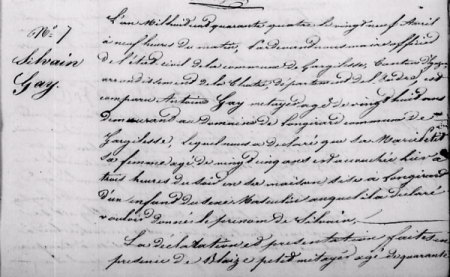 N° 7
Silvain
Gay.
L'an Mil huit cent quarante quatre le vingt neuf Avril
à neuf heures du matin, pardevant nous maire officier
de l'état civil de la commune de Gargilesse, Canton d'
arrondissement de la Chatre, département de l'Indre, est
comparu Antoine Gay métayer agé de vingt huit ans
demeurant au domaine de Longirard commune de
Gargilesse, lequel nous a déclaré que
sa femme agée de vingt cinq ans est accouchée hier à
trois heures du soir en sa maison sise à Longirard
d'un enfant du sexe Masculin auquel il a déclaré
vouloir donner le prénom de Silvain.
La déclaration et présentation faites en
présence de Blaize petit métayer agé de quarante